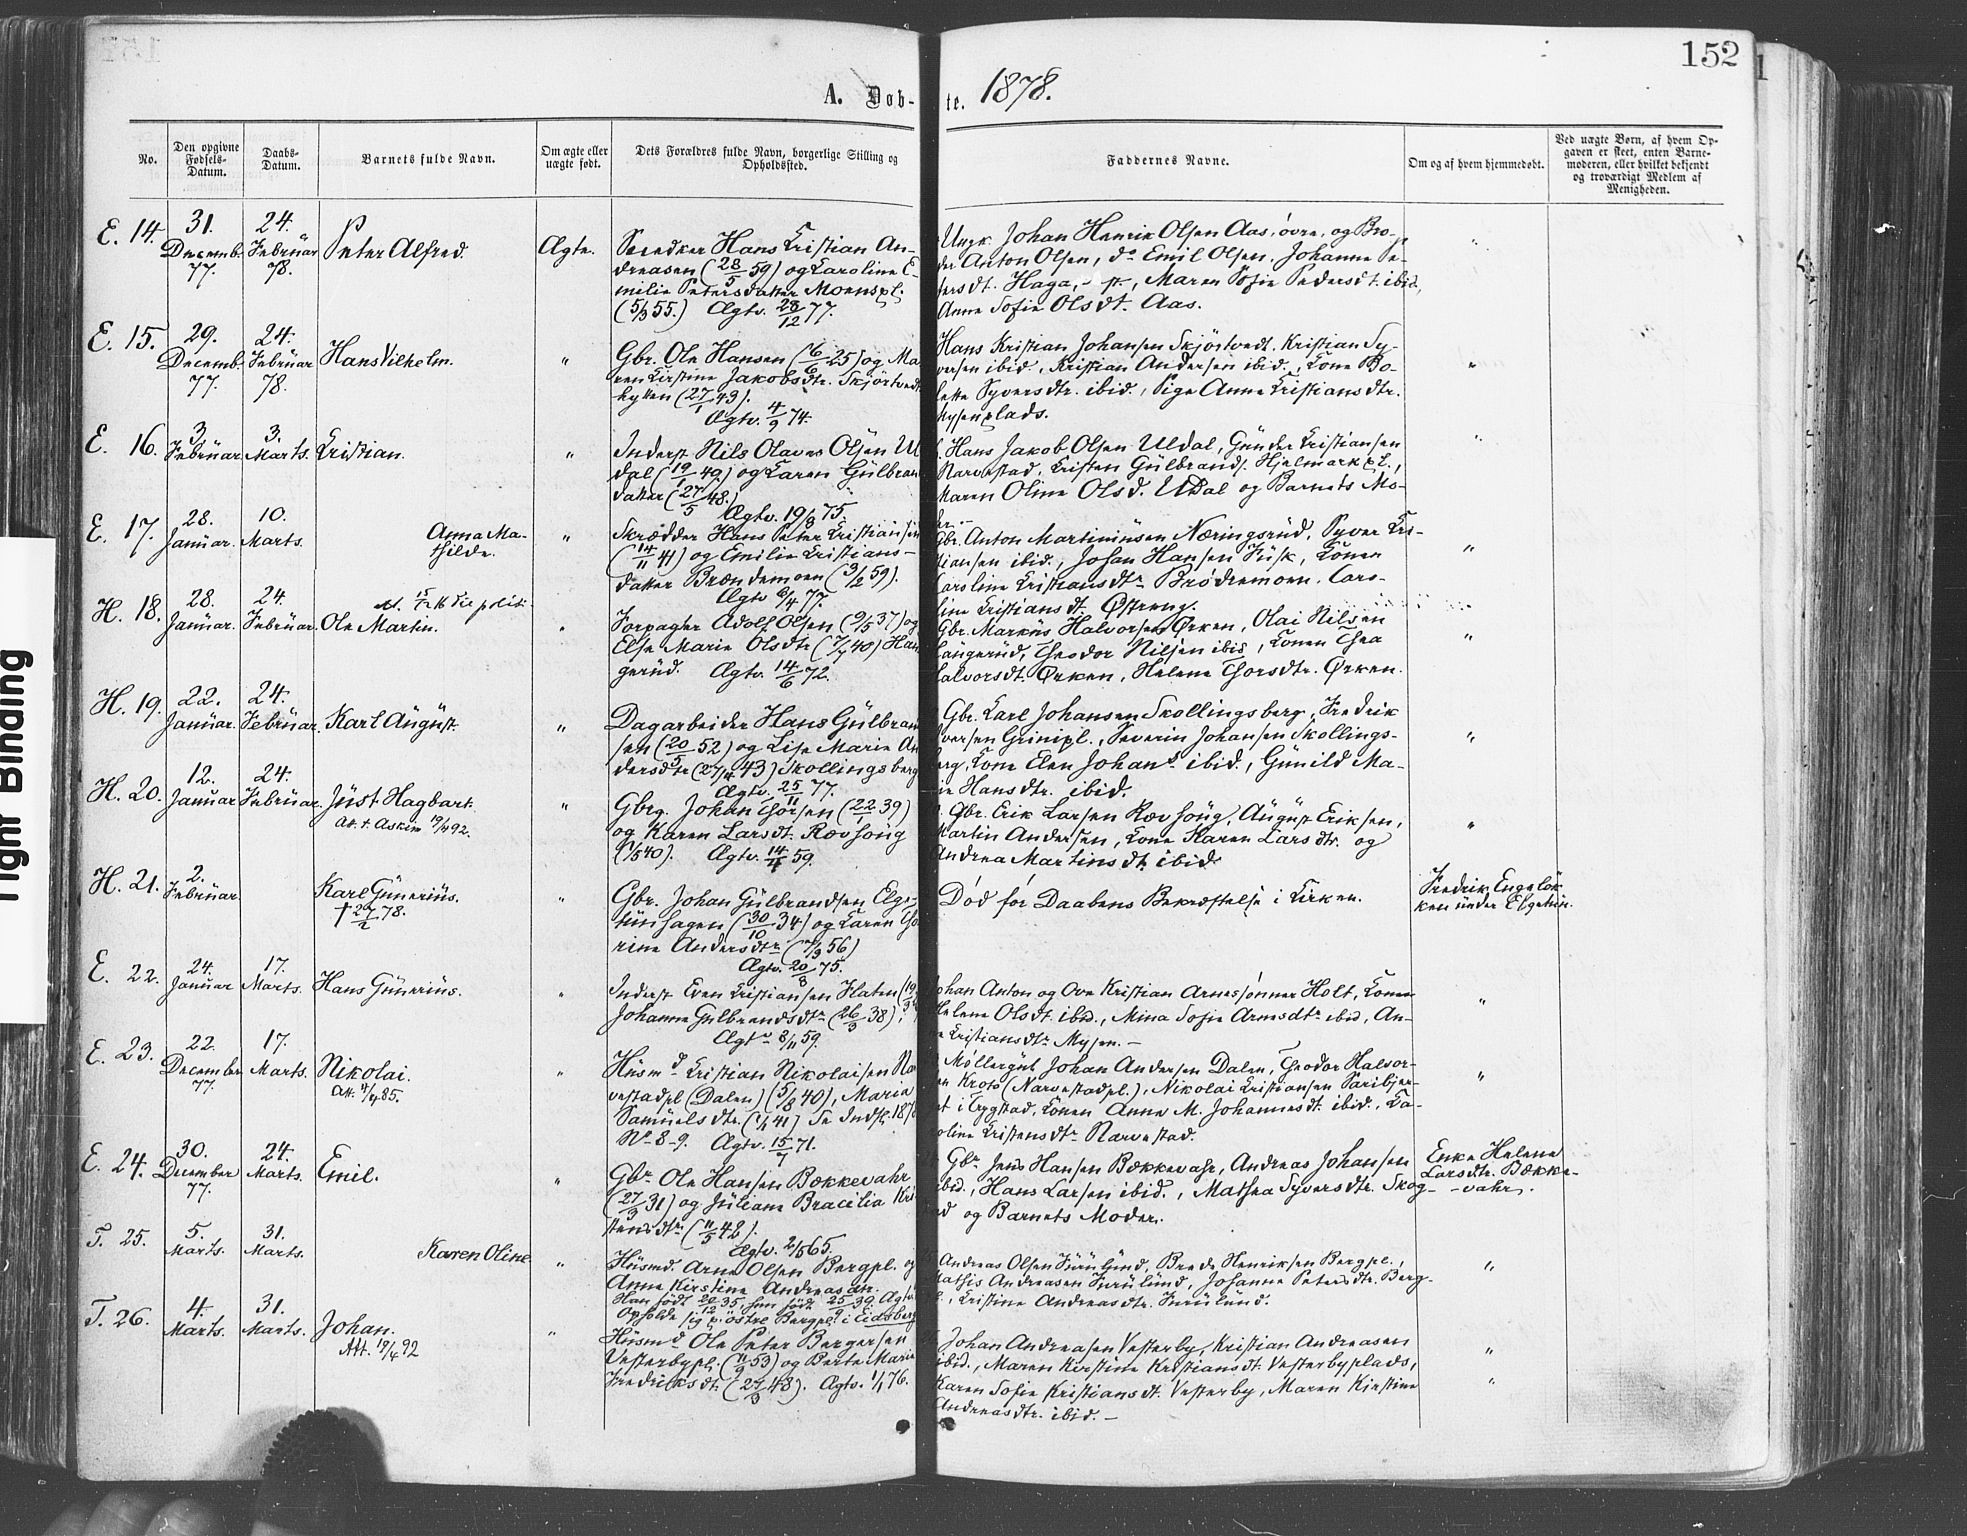 152
A. Døb-te. 1878.
No.
Den opgivne Fødsels-Datum.
Daabs-Datum.
Barnets fulde Navn.
Om ægte eller uægte født.
Dets Forældres fulde Navn, borgerlige Stilling og Opholdssted.
Faddernes Navne.
Om og af hvem hjemmedøbt.
Ved uægte Børn, af hvem Op-
gaven er skeet, enten Barne-
moderen, eller hvilket bekjendt
og troværdigt Medlem af
Menigheden.
E. 14. 31. Decemb. 77. 24. Februar 78. Peter Alfred. Ægte.
Hans Kristian An-
dreasen (28/5 59) og Karoline E-
milie Petersdatter Moenspl.
(5/3 55.) Ægtv. 28/12 77.
Ungk. Johan Henrik Olsen Aas, øvre, og Bro-
der Anton Olsen, do Emil Olsen. Johanne Pe-
dersdt. Haga, Maren Sofie Pedersdt. ibid,
Anne Sofie Olsdt. Aas.
E. 15. 29. Decemb. 77. 24. Februar 78. Hans Vilhelm. "
Gbr. Ole Hansen (6/6 25) og Ma-
ren Kirstine Jakobsdtr. Skjørtvedt
hytten (27/1 43).
Ægtv. 4/9 74.
Hans Kristian Johansen Skjørtvedt. Kristian Sy-
versen ibid, Kristian Andersen ibid., Kone Bo-
lette Syversdtr. ibid., Pige Anne Kristiansdtr.
Mysenplads.
"
E. 16. 3. Februar. 3. Marts. Kristian. "
Inderst Nils Olaves Olsen Ul-
dal (19/1 49) og Karen Gulbran
datter (27/5 48.)
Ægtv. 19/8 75.
Hans Jakob Olsen Uldal, Gunder Kristiansen
Narvestad, Kristen Gulbrands. Hjelmark pl.,
Maren Oline Olsd. Uldal og Barnets Mo-
der.
"
E. 17. 28. Januar. 10. Marts. Anna Ma-
thilde. "
Skrædder Hans Peter Kristiansen
(14/11 41) og Emilie Kristians-
datter Brændemoen (3/2 59).
Ægtv 6/4 77.
Gbr. Anton Martiniusen Næringsrud, Syver Kri-
stiansen ibid., Johan Hansen Kisk, Konen
Karoline Kristiansdtr Brødremoen. Karo-
line Kristiansdt. Østreng.
"
H. 18. 28. Januar. 24. Februar. Ole Martin. "
Forpagter Adolf Olsen (9/5 37) og
Else Marie Olsdtr (7/7 40) Han
gerud. Ægtv. 14/6 72.
Gbr. Markus Halvorsen Ørken, Olai Nilsen
Hangerud, Theodor Nilsen ibid, Konen Thea
Halvorsdt. Ørken, Helene Thorsdtr. Ørken.
"
H. 19. 22. Januar. 24. Februar. Karl August. "
Dagarbeider Hans Gulbran
sen (20/5 52) og Lise Marie An
dersdtr (27/4 43) Skollingsberg
Ægtv. 25/11 77.
Gbr. Karl Johansen Skollingsberg, Fredrik
Iversen Grinipl., Severin Johansen Skollings-
berg, Kone Elen Johans. ibid., Gunild Ma-
rie Hansdtr. ibid.
"
H. 20. 12. Januar 24. Februar. Just Hagbart.
Att. t. Askim 19/4 92. "
Gbrg. Johan Thorsen (22/1 39)
og Karen Larsdt. Rævhaug
(1/5 40). Ægtv. 14/4 59.
Gbr. Erik Larsen Rævhaug, August Eriksen,
Martin Andersen, Kone Karen Larsdtr. og
Andrea Martinsdt. ibid
"
H. 21. 2. Februar Karl Gunerius.
† 27/2 78. "
Gbr. Johan Gulbrandsen Elge-
tunhagen (30/10 34) og Karen Tho
rine Andersdtr (7/3 56)
Ægtv. 20/8 75.
Død før Daabens Bekræftelse i Kirken.
Fredrik Engeløk
ken under Elgetun.
E. 22. 24. Januar 17. Marts. Hans Gunerius. "
Inderst Even Kristiansen Haten
Johanne Gulbrandsdtr (26/3 38);
Ægtv. 8/11 59.
Johan Anton og Ove Kristian Arnesønner Holt, Konen
Helene Olsdt. ibid., Mina Sofie Arnesdtr ibid, An-
ne Kristiansdtr Mysen.—
"
E. 23. 22. December 77. 17. Marts. Nikolai.
Att. 4/4 85. "
Husmd. Kristian Nikolaisen Nar
vestadpl (Dalen) (5/8 40), Maria
Samuelsdtr. (1/1 41) Se Indfl. 187
No 8-9. Ægtv. 15/7 71.
Møllergut Johan Andersen Dalen, Theodor Halvor-
sen Kroto (Narvestadpl.), Nikolai Kristiansen Saribjer-
get i Trygstad, Konen Anne M. Johannesdt. ibid., Ka-
roline Kristensdtr Narvestad.
"
E. 24. 30. December 77. 24. Marts. Emil. "
Gbr Ole Hansen Bækkevahr
(27/3 31) og Juliane Bracilia Kri
stensdtr (11/5 42).
Ægtv. 2/5 65.
Gbr Jens Hansen Bækkevahr, Andreas Johansen
ibid., Hans Larsen ibid., Mathea Syversdtr. Skog-
og Barnets Moder.
Enke Helene
Larsdtr. Bække-
vahr.
T. 25. 5. Marts. 31. Marts. Karen Oline "
Husmd. Arne Olsen Bergpl. og
Anne Kirstine Andreasdtr.
Han født 20/12 35, hun født 25/9 39, Ægtv
Opholde sig p. østre Bergpl. i Eidsberg
Andreas Olsen Furulund, Brede Henriksen Bergpl.,
Mathis Andreasen Furulund, Johanne Petersdtr. Berg-
pl., Kristine Andreasdtr. Furulund.
"
T. 26. 4. Marts. 31. Marts. Johan.
Att. 19/4 92 "
Husmd Ole Peter Bergersen
Vesterbypl. (11/9 53) og Berte Marie
Fredriksdt. (27/3 48). Ægtv. 1/1 76.
Johan Andreasen Vesterby, Kristian Andreasen
ibid., Maren Kirstine Kristiansdt. Vesterbyplads,
Karen Sofie Kristiansdt. Vesterby, Maren Kirstine
Andreasdtr. ibid.—
"
Tight Binding